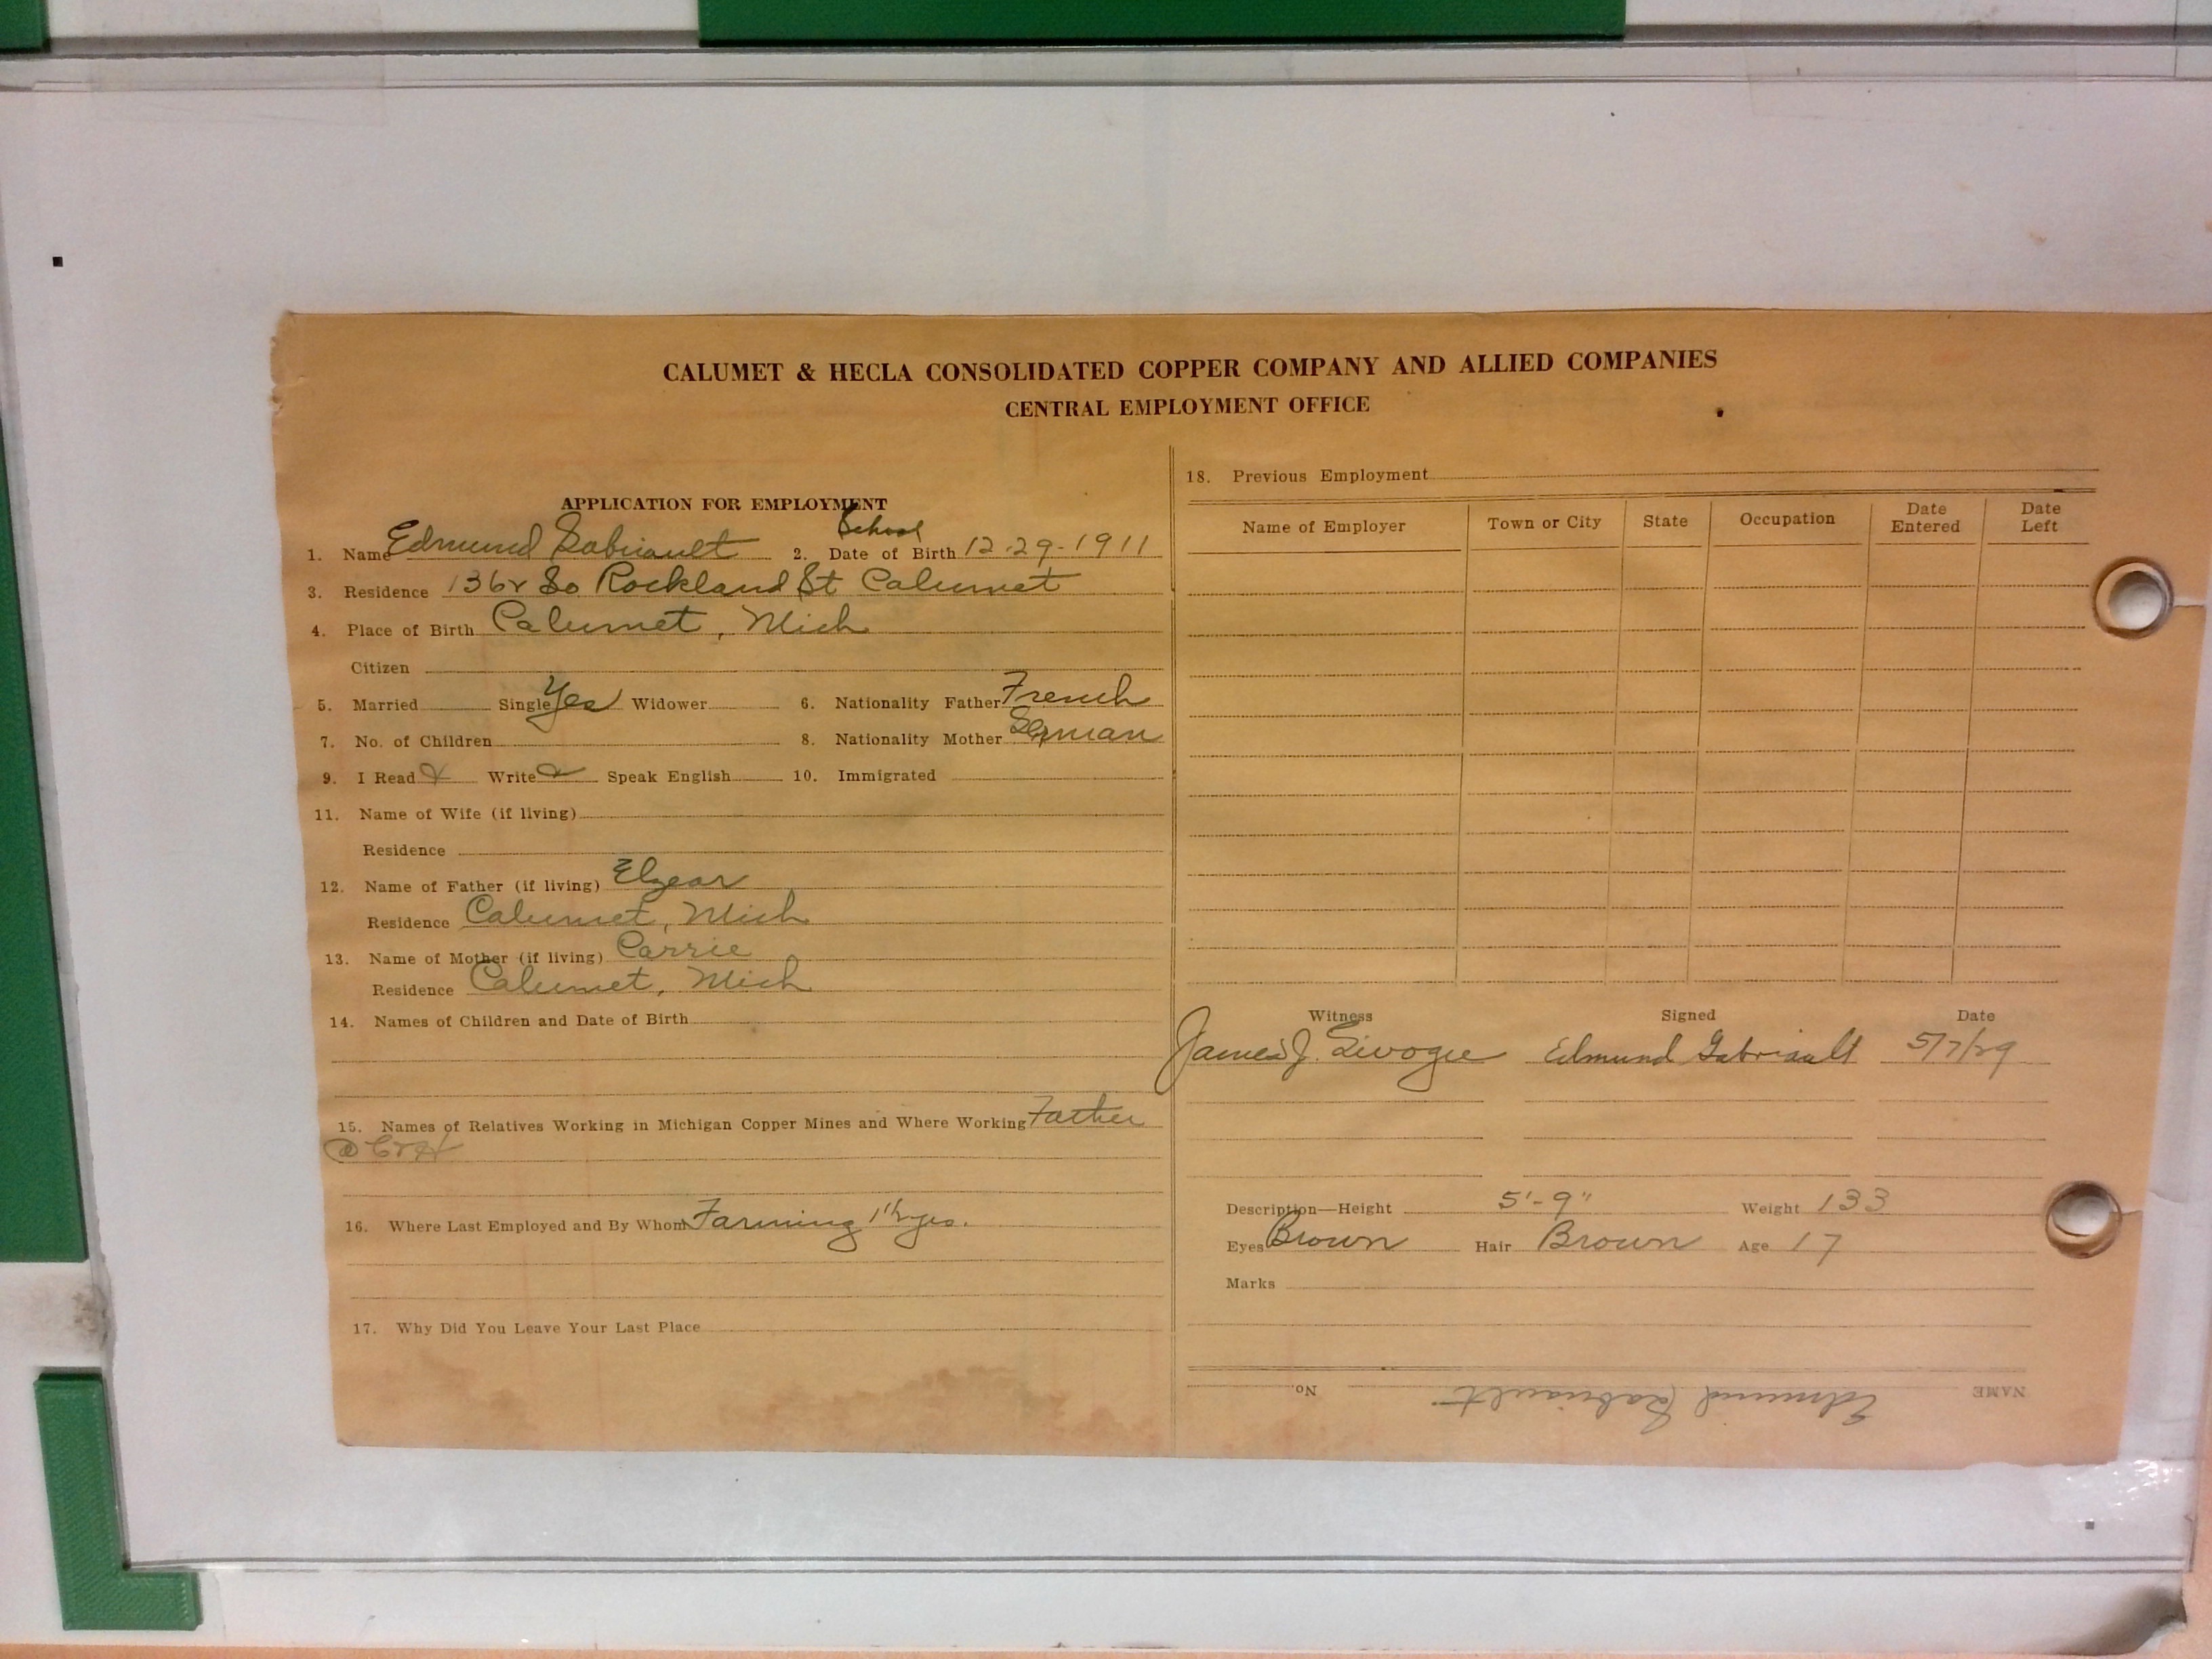 CALUMET & HECLA CONSOLIDATED COPPER COMPANY AND ALLIED COMPANIES
CENTRAL EMPLOYMENT OFFICE
APPLICATION FOR EMPLOYMENT
School
1. Name Edmund Gabriault 2. Date of Birth 12-29-1911
3. Residence So Rockland St Calumet
4. Place of Birth Calumet, Mich
Citizen
5. Married Single Yes Widower 6. Nationality Father French
7. No. of Children 8. Nationality Mother German
9. I Read Write Speak English 10. Immigrated
11. Name of Wife (if living)
Residence
12. Name of Father (if living) Elzear
Residence Calumet, Mich
13. Name of Mother (if living) Carrie
Residence Calumet, Mich
14. Names of Children and Date of Birth
15. Names of Relatives Working in Michigan Copper Mines and Where Working Father
@ C&H
16. Where Last Employed and By Whom Farming
17. Why Did You Leave Your Last Place
18. Previous Employment
Name of Employer Town or City State Occupation Date Entered Date Left
Witness Signed Date
James J. Edmund Gabriault 5/7/29
Description—Height 5'-9" Weight 133
Eyes Brown Hair Brown Age 17
Marks
NAME Edmund Gabriault No.